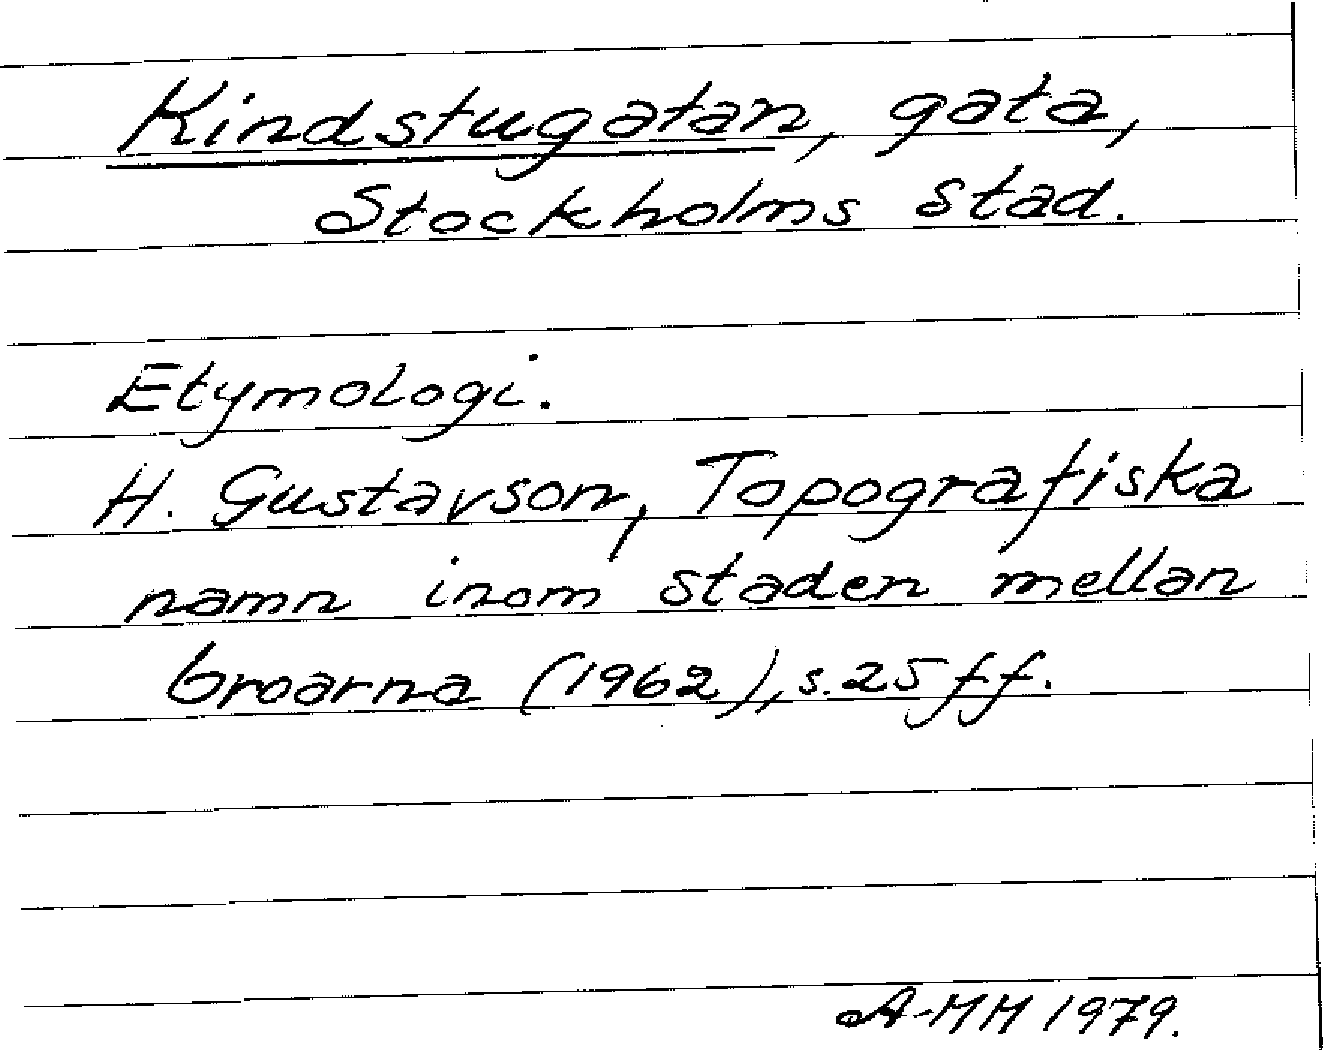 Kindstugatan, gata,
Stockholms stad.
Etymologi.
H. Gustavson, Topografiska
namn inom staden mellan
broarna (1962), s. 25 ff.
A-MM 1979.